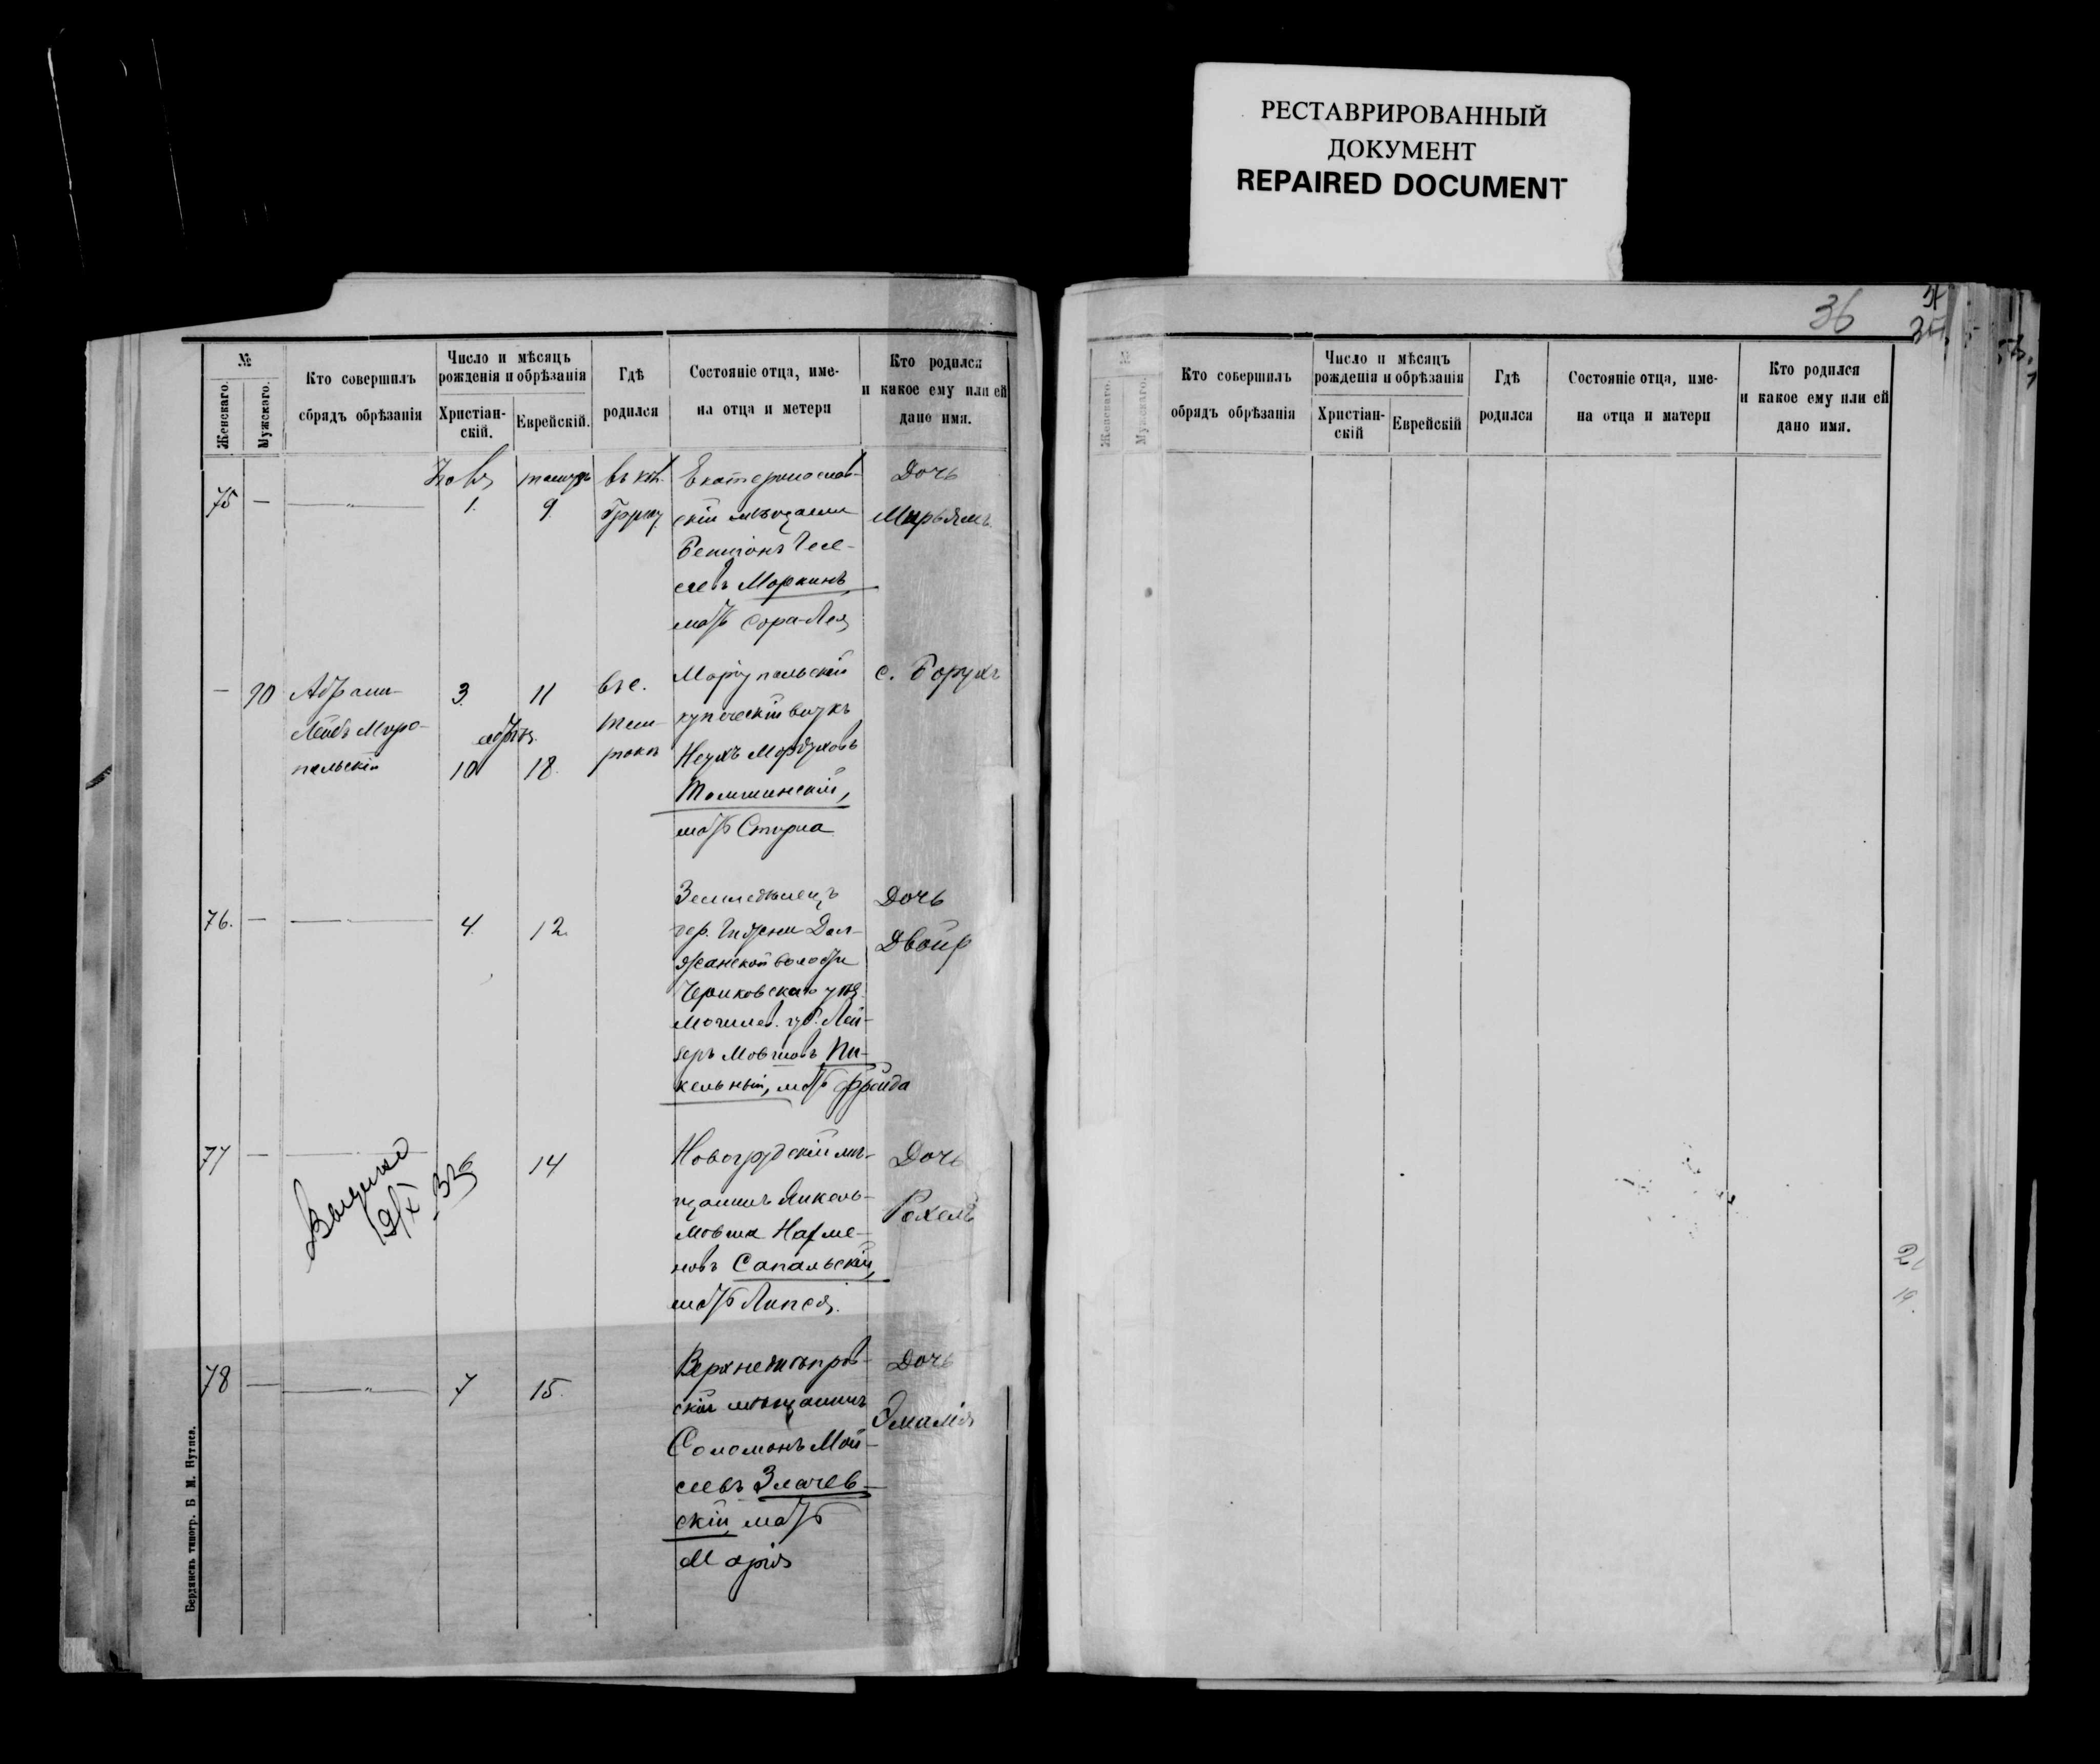 РЕСТАВРИРОВАННЫЙ
ДОКУМЕНТ
REPAIRED DOCUMENT
№
Женскаго.
Мужскаго.
Кто совершилъ
обрядъ обрѣзанія
Число и мѣсяцъ
рожденія и обрѣзанія
Христіан-
скій.
Еврейскій.
Гдѣ
родился
Состояніе отца, име-
на отца и метери
Кто родился
и какое ему или ей
дано имя.
75 —
1. 9
Екатеринослав-
скій мѣщанинъ
слевъ Моркинъ,
мать Сора-Лея
Дочь
Мирьямъ
— 70
Абрам-
Лейбъ Миро-
польскій
3. 11
обрѣз.
10 18.
въ с.
Маріупольскій
купеческій внукъ
Неухъ Мордуховъ
мать Стерна
с. Борухъ
76. —
4. 12.
Земледѣлецъ
дер.
Чериковскаго уѣз.
Могилев. губ. Лей-
зеръ Мовшовъ Пи-
кельный, мать Фрейда
Дочь
Двойр
77 —
6 14
Новогрудскій мѣ-
щанинъ Янкель-
Мовша
новъ Сапальскій,
мать
Дочь
Рохель
78 —
7 15.
Верхнеднѣпров-
скій мѣщанинъ
Соломонъ Мой-
сеевъ Злачев-
скій, мать
Марія
Дочь
Эмилія
Бердянскъ типогр. Б М. Нутиса.
36
№
Женскаго.
Мужскаго.
Кто совершилъ
обрядъ обрѣзанія
Число и мѣсяцъ
рожденія и обрѣзанія
Христіан-
скій
Еврейскій
Гдѣ
родился
Состояніе отца, име-
на отца и матери
Кто родился
и какое ему или ей
дано имя.